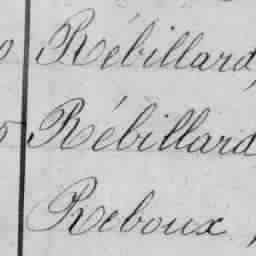 Rébillard,
Rébillard
Reboux,